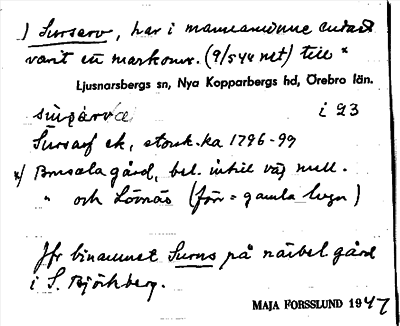 ) Sursarv, har i mannaminne endast
varit en markomr. (9/544 net) till *
Ljusnarsbergs sn, Nya Kopparbergs hd, Örebro län.
i 23
Sursarf ek, storsk.ka 1796-99
*) Bursala gård, bel. intill väg mell.
" och Lövnäs (förr = gamla byn)
Jfr binamnet Surns på närbel gård
i S. Björkberg.
MAJA FORSSLUND 1947